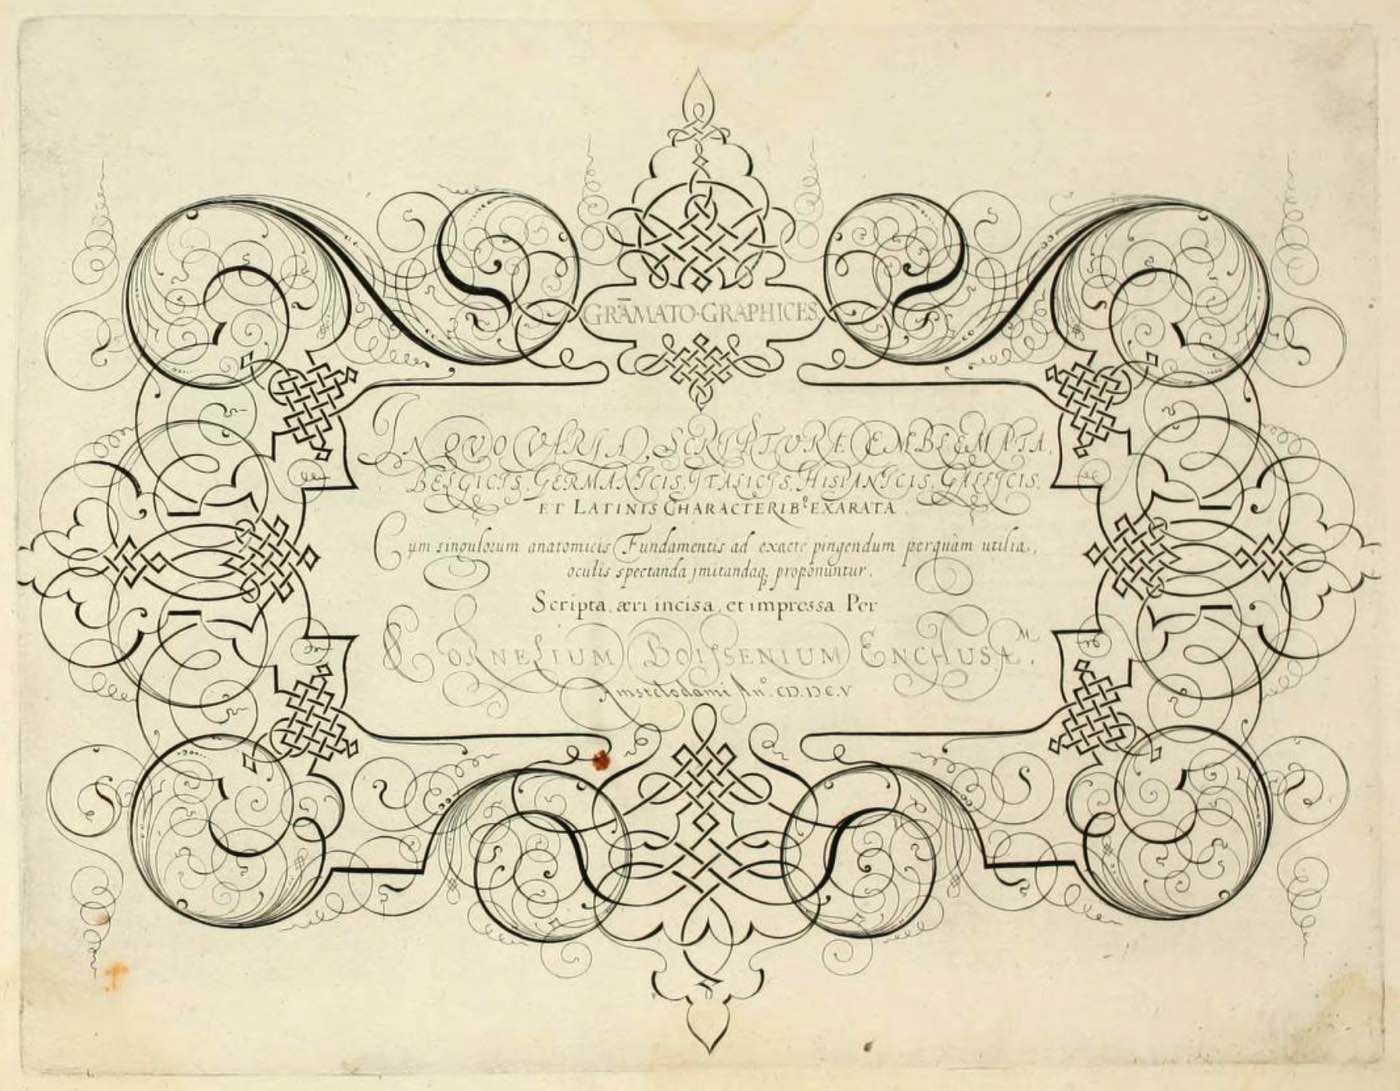 GRĀMATO·GRAPHICES
IN QVO VARIA, SCRIPTVRÆ EMBLEMATA,
BELGICIS, GERMANICIS, ITALICIS, HISPANICIS, GALLICIS,
ET LATINIS CHARACTERIBꝰ EXARATA.
Cum singulorum anatomicis Fundamentis ad exacte pingendum perquàm utilia,
oculis spectanda jmitandaq, proponuntur.
Scripta, æri incisa, et impressa Per
CORNELIUM BOISSENIUM ENCHUSAM.
Amstelodami Anº. CD.DC.V